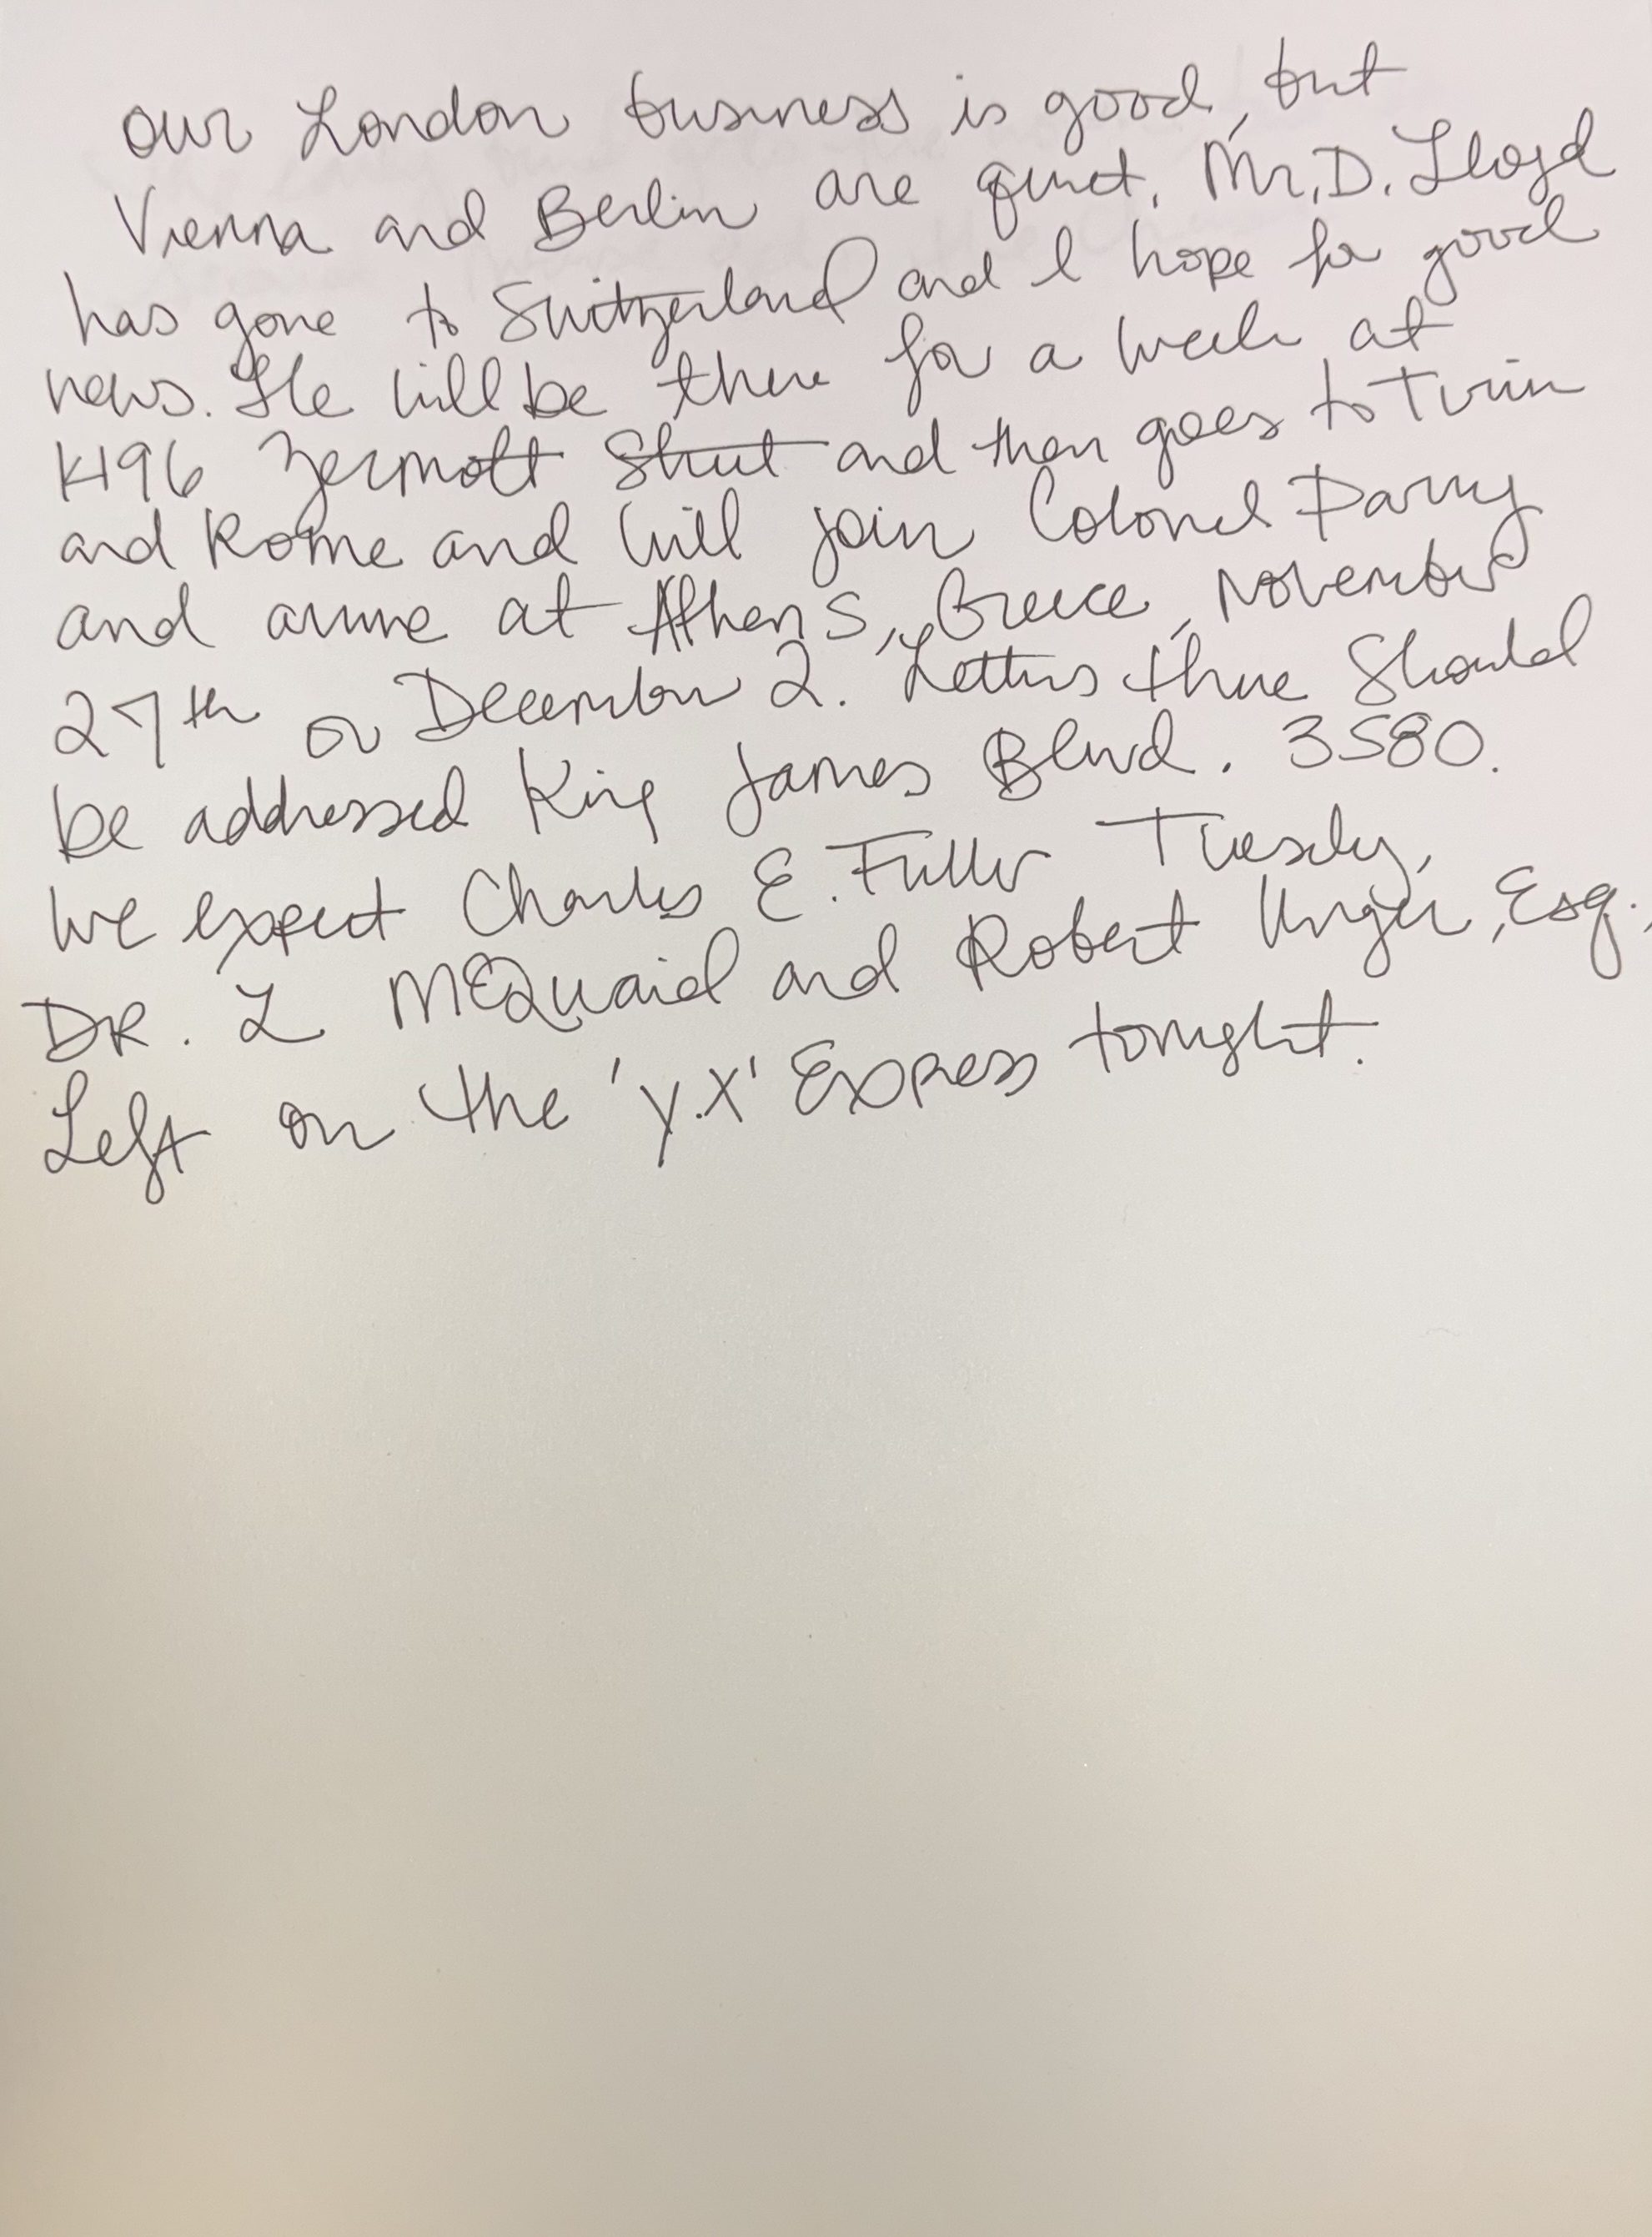 Our London business is good, but
Vienna and Berlin are quiet. Mr. D. Lloyd
has gone to Switzerland and I hope for good
news. He will be there for a week at
1496 Zermott Street and then goes to Turin
and Rome and will join Colonel Parry
and arrive at Athens, Greece, November
27th or December 2. Letters there should
be addressed King James Blvd. 3580.
We expect Charles E. Fuller Tuesday.
DR. L McQuaid and Robert Unger, Esq.,
Left on the 'Y.X' Express tonight.